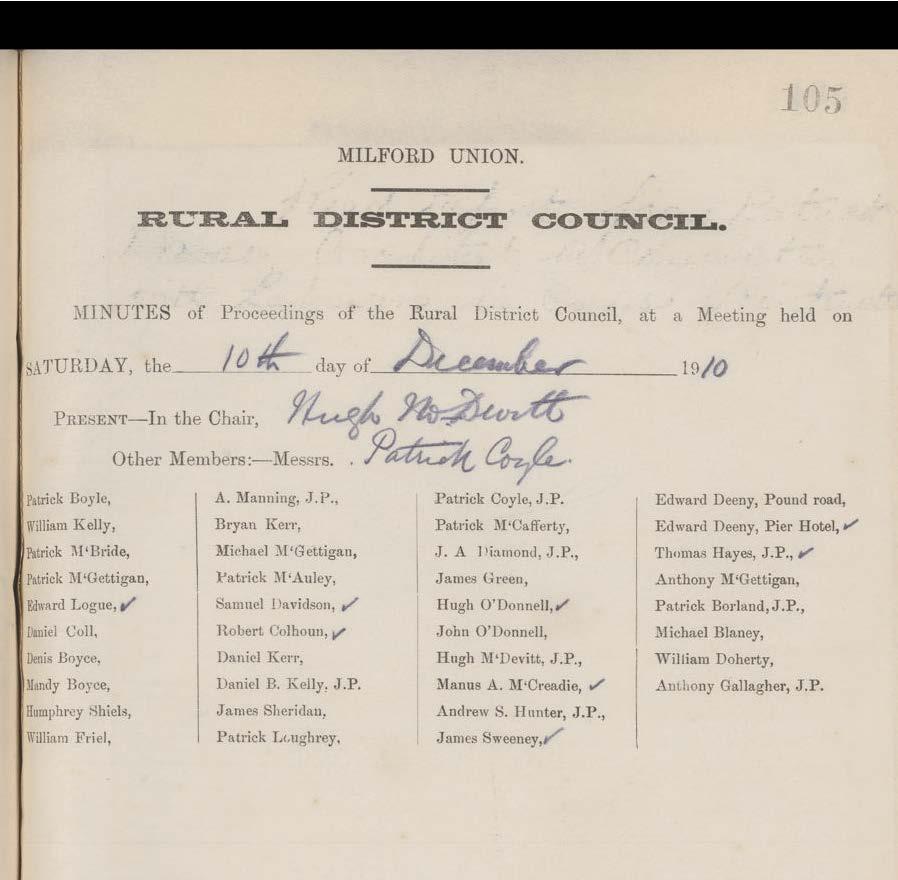 105
MILFORD UNION.
RURAL DISTRICT COUNCIL.
MINUTES of Proceedings of the Rural District Council, at a Meeting held on
SATURDAY, the 10th day of December 1910
PRESENT—In the Chair, Hugh McDevitt
Other Members:—Messrs. . Patrick Coyle.
Patrick Boyle,
William Kelly,
Patrick M‘Bride,
Patrick M‘Gettigan,
Edward Logue, ✓
Daniel Coll,
Denis Boyce,
Mandy Boyce,
Humphrey Shiels,
William Friel,
A. Manning, J.P.,
Bryan Kerr,
Michael M‘Gettigan,
Patrick M‘Auley,
Samuel Davidson, ✓
Robert Colhoun, ✓
Daniel Kerr,
Daniel B. Kelly, J.P.
James Sheridan,
Patrick Loughrey,
Patrick Coyle, J.P.
Patrick M‘Cafferty,
J. A Diamond, J.P.,
James Green,
Hugh O’Donnell, ✓
John O’Donnell,
Hugh M‘Devitt, J.P.,
Manus A. M‘Creadie, ✓
Andrew S. Hunter, J.P.,
James Sweeney, ✓
Edward Deeny, Pound road,
Edward Deeny, Pier Hotel, ✓
Thomas Hayes, J.P., ✓
Anthony M‘Gettigan,
Patrick Borland, J.P.,
Michael Blaney,
William Doherty,
Anthony Gallagher, J.P.